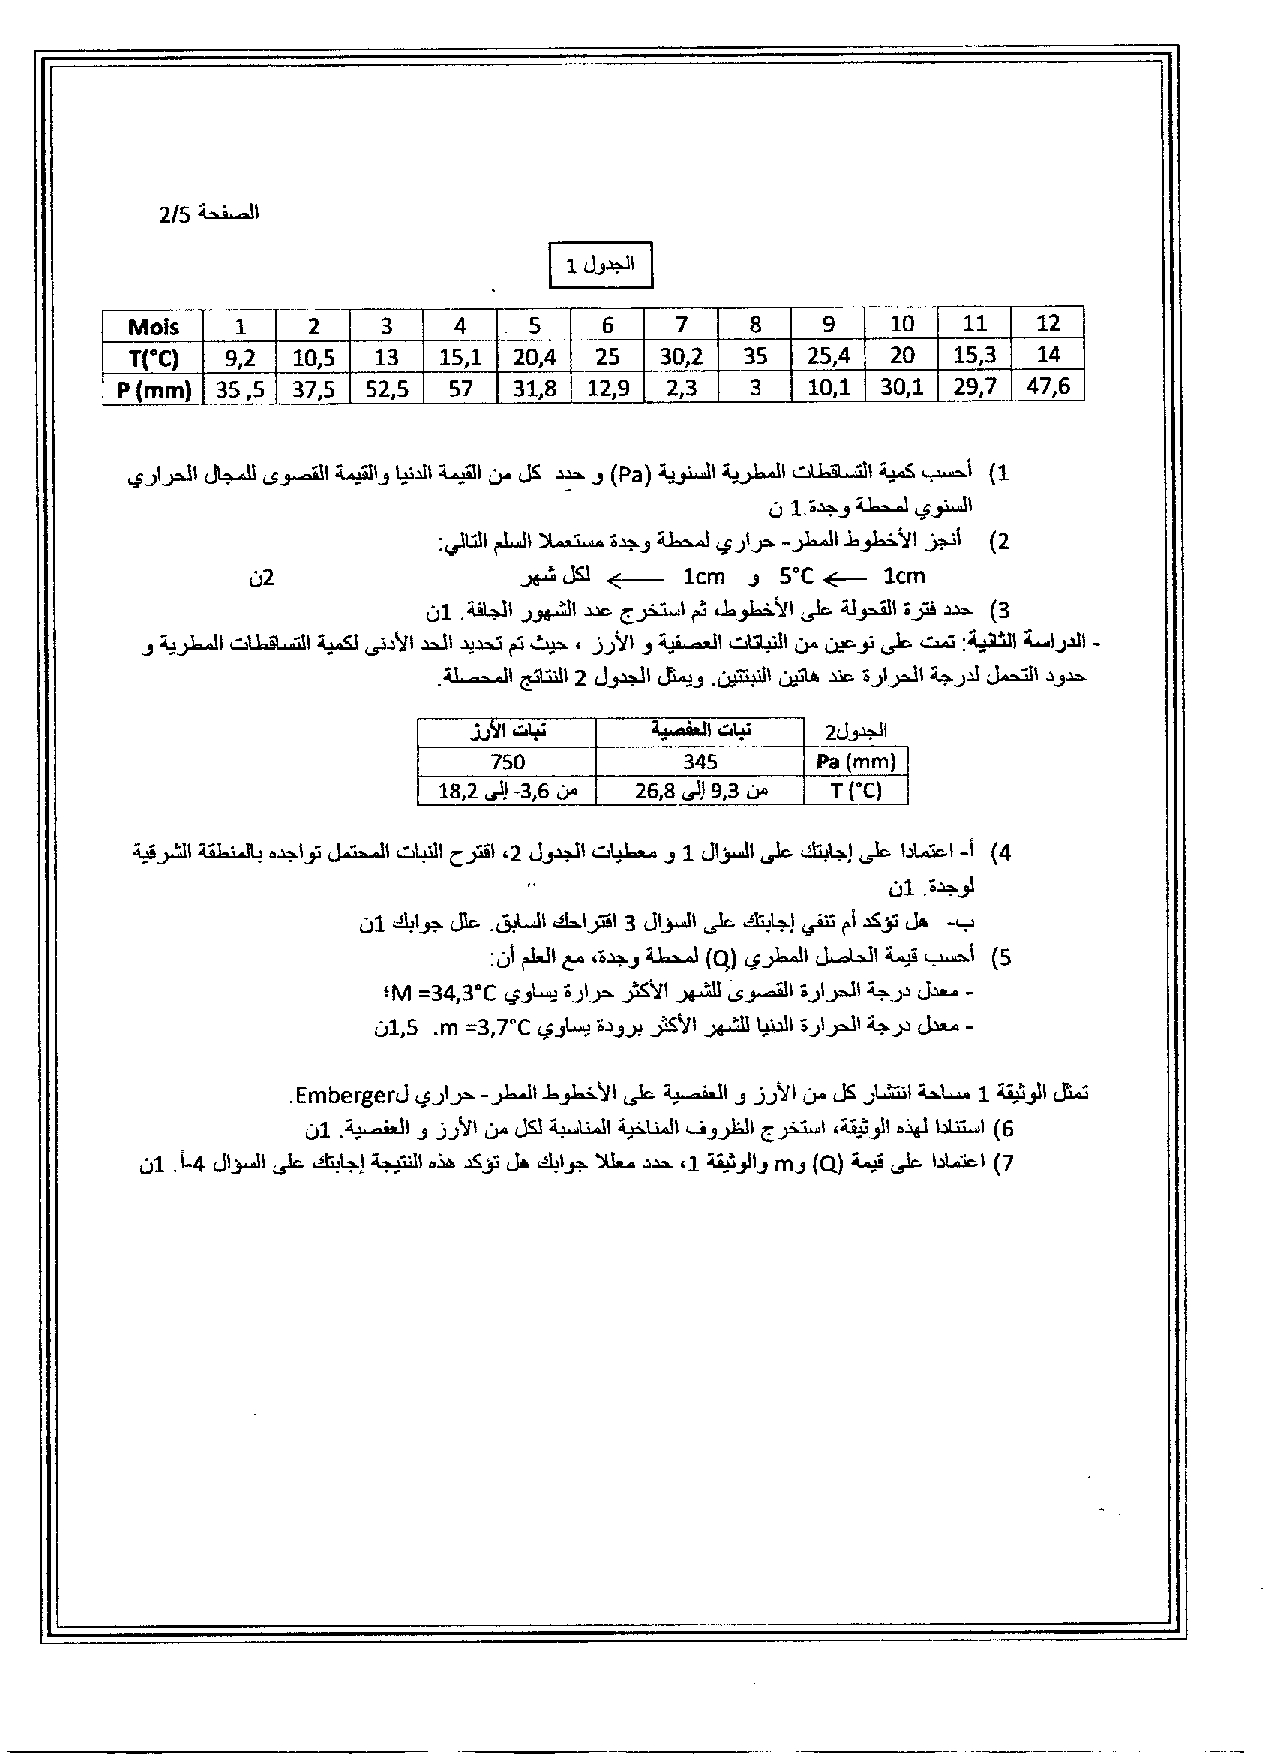 الصفحة 2/5
الجدول 1
Mois 1 2 3 4 5 6 7 8 9 10 11 12
T(°C) 9,2 10,5 13 15,1 20,4 25 30,2 35 25,4 20 15,3 14
P (mm) 35,5 37,5 52,5 57 31,8 12,9 2,3 3 10,1 30,1 29,7 47,6
1) أحسب كمية التساقطات المطرية السنوية (Pa) و حدد كل من القيمة الدنيا والقيمة القصوى للمجال الحراري
السنوي لمحطة وجدة. 1 ن
2) أنجز الأخطوط المطر- حراري لمحطة وجدة مستعملا السلم التالي:
1cm ← 5°C و 1cm ← لكل شهر 2ن
3) حدد فترة القحولة على الأخطوط، ثم استخرج عدد الشهور الجافة. 1ن
- الدراسة الثانية: تمت على نوعين من النباتات العصفية و الأرز ، حيث تم تحديد الحد الأدنى لكمية التساقطات المطرية و
حدود التحمل لدرجة الحرارة عند هاتين النبتتين. ويمثل الجدول 2 النتائج المحصلة.
الجدول2 نبات العفصية نبات الأرز
Pa (mm) 345 750
T (°C) من 9,3 إلى 26,8 من 3,6- إلى 18,2
4) أ- اعتمادا على إجابتك على السؤال 1 و معطيات الجدول 2، اقترح النبات المحتمل تواجده بالمنطقة الشرقية
لوجدة. 1ن
ب- هل تؤكد أم تنفي إجابتك على السؤال 3 اقتراحك السابق. علل جوابك 1ن
5) أحسب قيمة الحاصل المطري (Q) لمحطة وجدة، مع العلم أن:
- معدل درجة الحرارة القصوى للشهر الأكثر حرارة يساوي M =34,3°C؛
- معدل درجة الحرارة الدنيا للشهر الأكثر برودة يساوي m =3,7°C. 1,5ن
تمثل الوثيقة 1 مساحة انتشار كل من الأرز و العفصية على الأخطوط المطر- حراري لEmberger.
6) استنادا لهذه الوثيقة، استخرج الظروف المناخية المناسبة لكل من الأرز و العفصية. 1ن
7) اعتمادا على قيمة (Q) وm والوثيقة 1، حدد معللا جوابك هل تؤكد هذه النتيجة إجابتك على السؤال 4-أ. 1ن